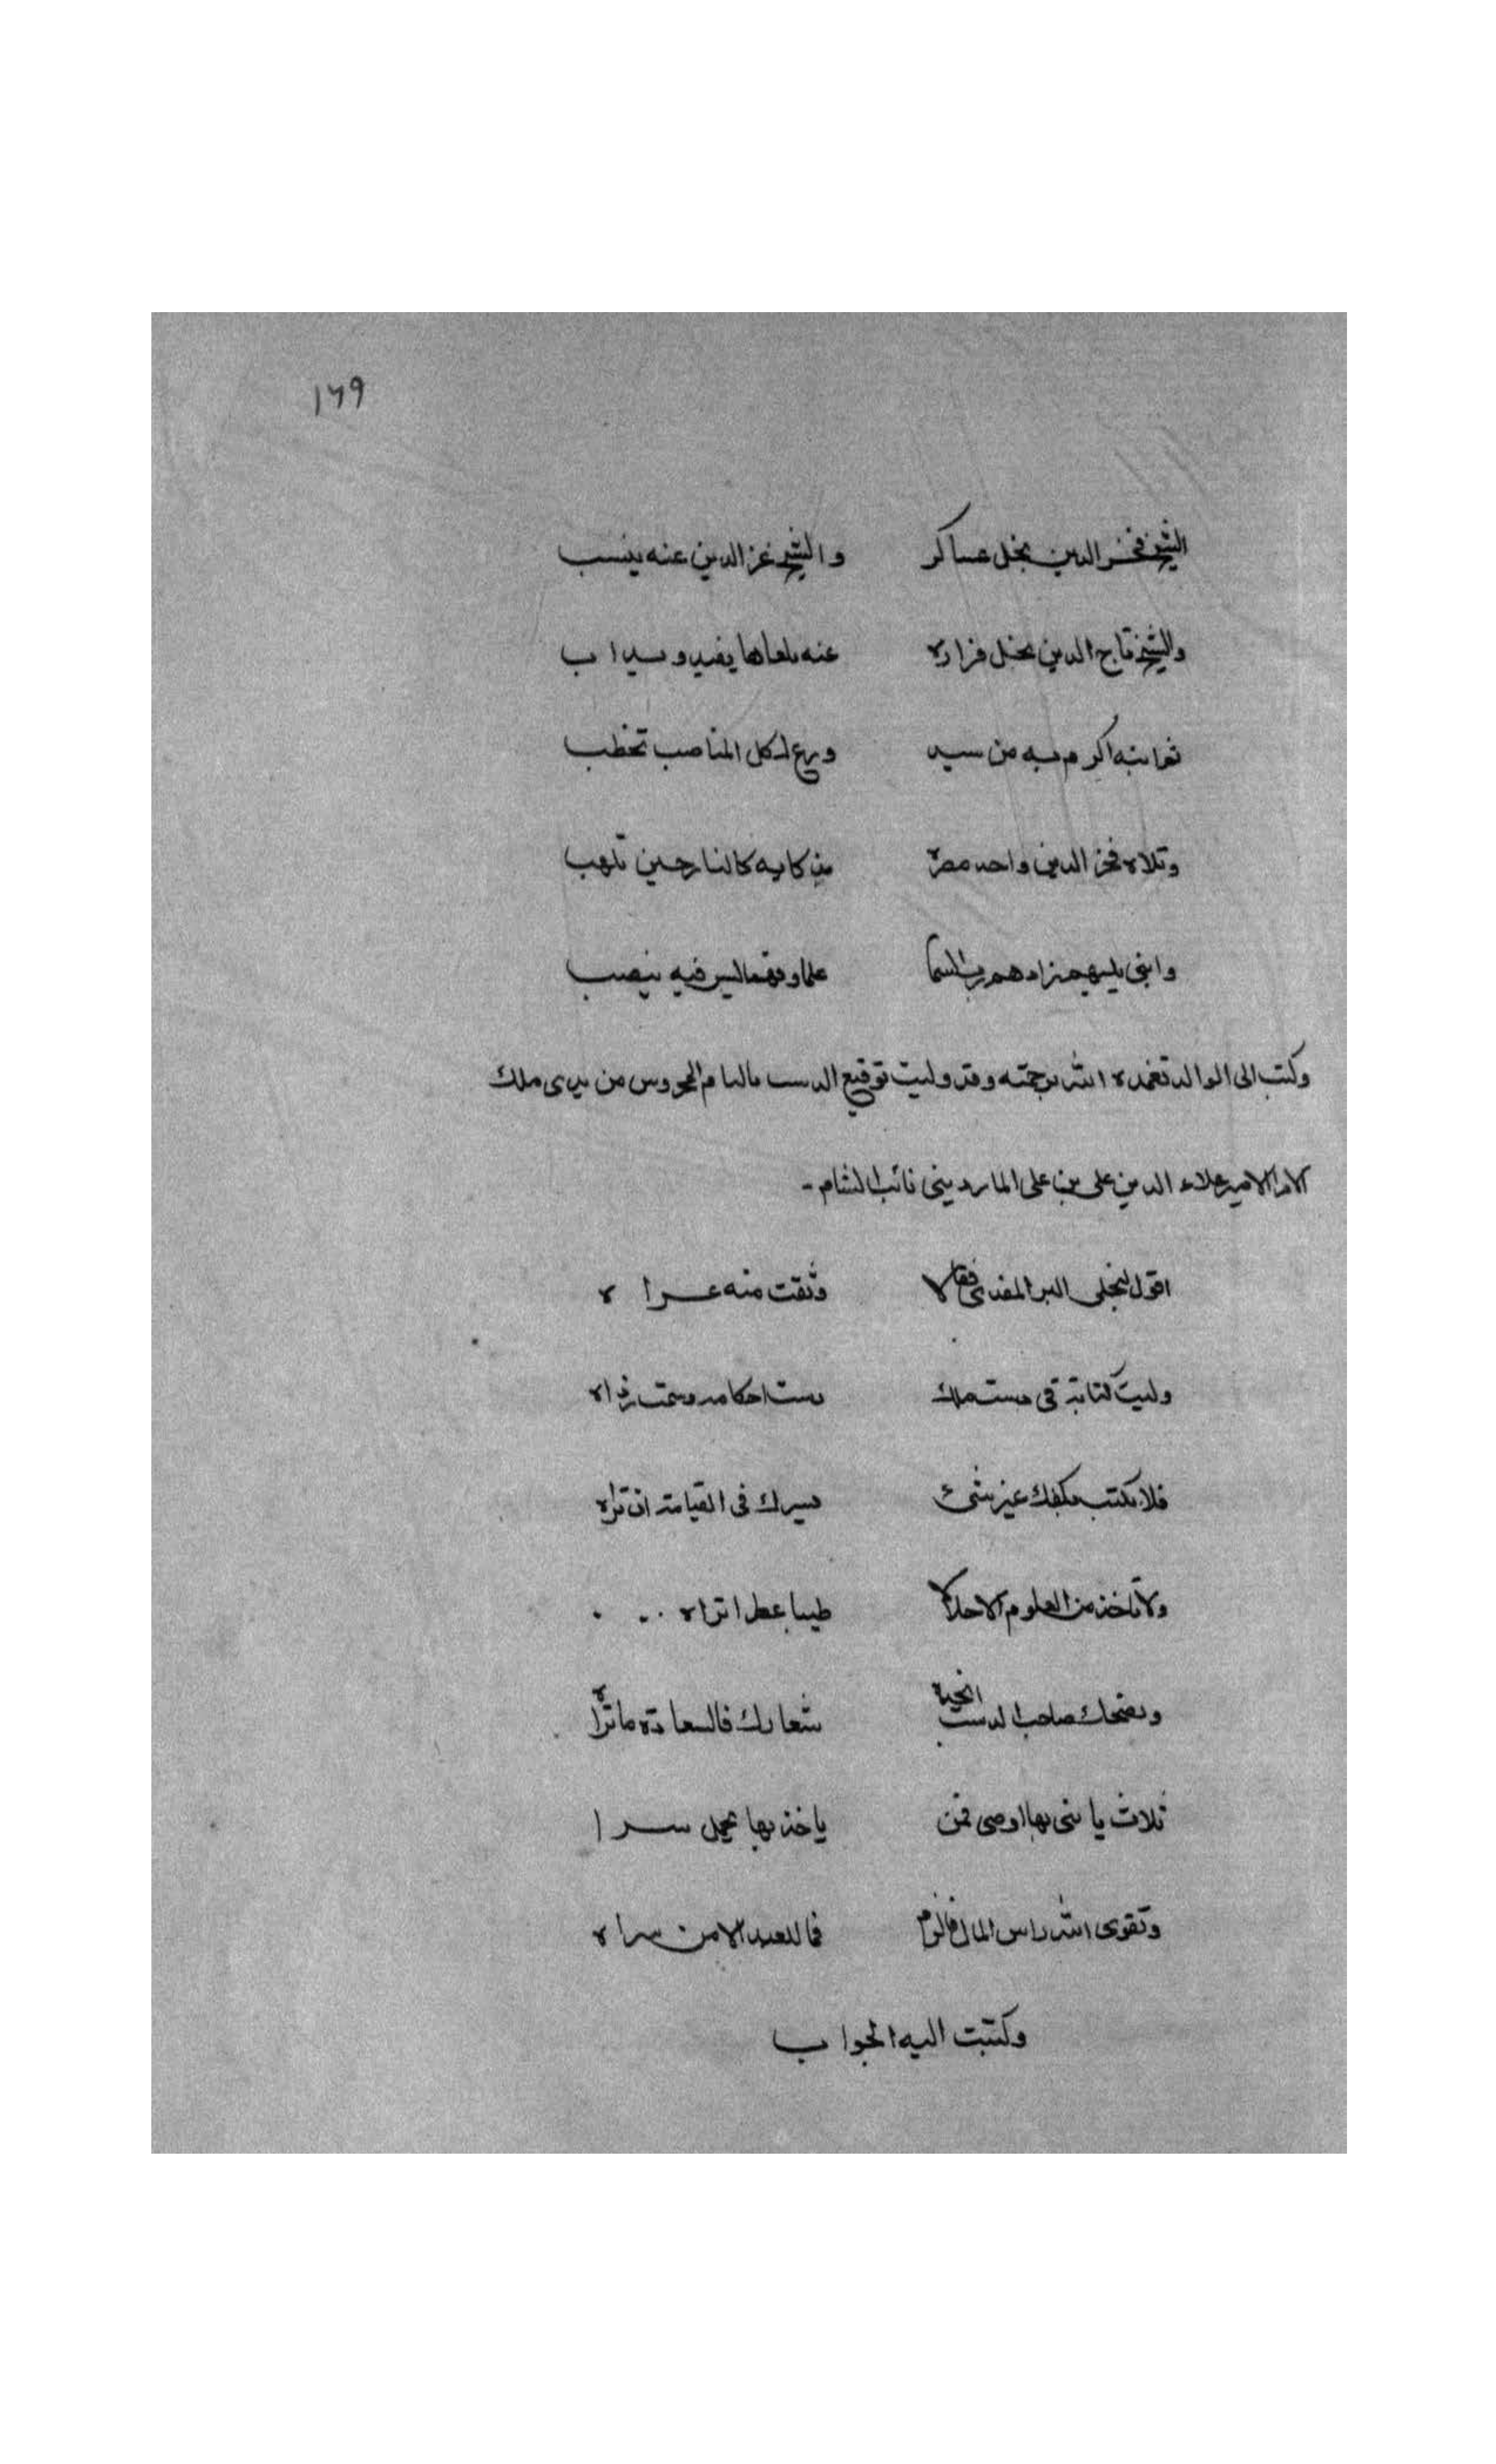 ١٦٩
الشيخ فخر الدين نجل عساكر والشيخ عز الدين عنه ينسب
والشيخ تاج الدين نجل فزاره عنه يفيد ويداب
اكرم به من سيد ورع لكل المناصب تخطب
وتلاه فخر الدين واحد مصره كالنار حين تلهب
وابنى يليهم زادهم رب السما علما وفهما ليس فيه ينصب
وكتب الى الوالد تغمده الله برحمته وقد وليت توقيع الدست بالشام المحروس من يدى ملك
الامرا الامير علاء الدين على بن على الماردينى نائب الشام -
اقول لنجلى البر المفدى وثقت منه عراه
وليت كتابة فى دست ملك دست احكامه وسمت ذراه
فلا تكتب بكفك غير شئ يسرك فى القيامة ان تراه
ولا تاخذ من العلوم الا حلالا طيبا عطرا تراه
ونصحك صاحب الدست شعارك فالسعادة ما تراه
ثلاث يا بنى بها اوصى فمن ياخذ بها يحمل سرا
وتقوى الله راس المال فالزم فما للعبد الا من براه
وكتبت اليه الجواب